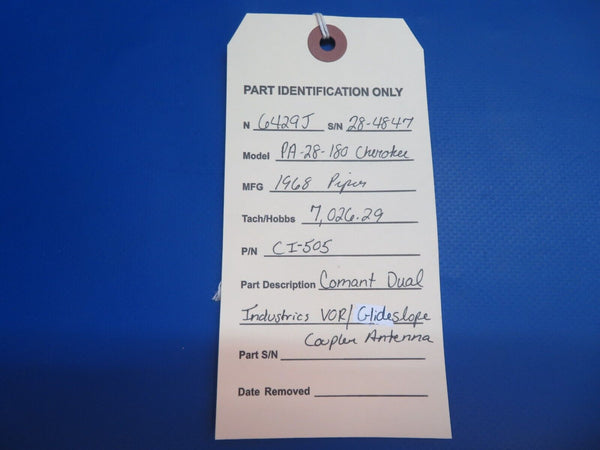 PART IDENTIFICATION ONLY
N 6429J S/N 28-4847
Model PA-28-180 Cherokee
MFG 1968 Piper
Tach/Hobbs 7,026.29
P/N CI-505
Part Description Comant Dual
Industries VOR/ Glideslope
Coupler Antenna
Part S/N
Date Removed